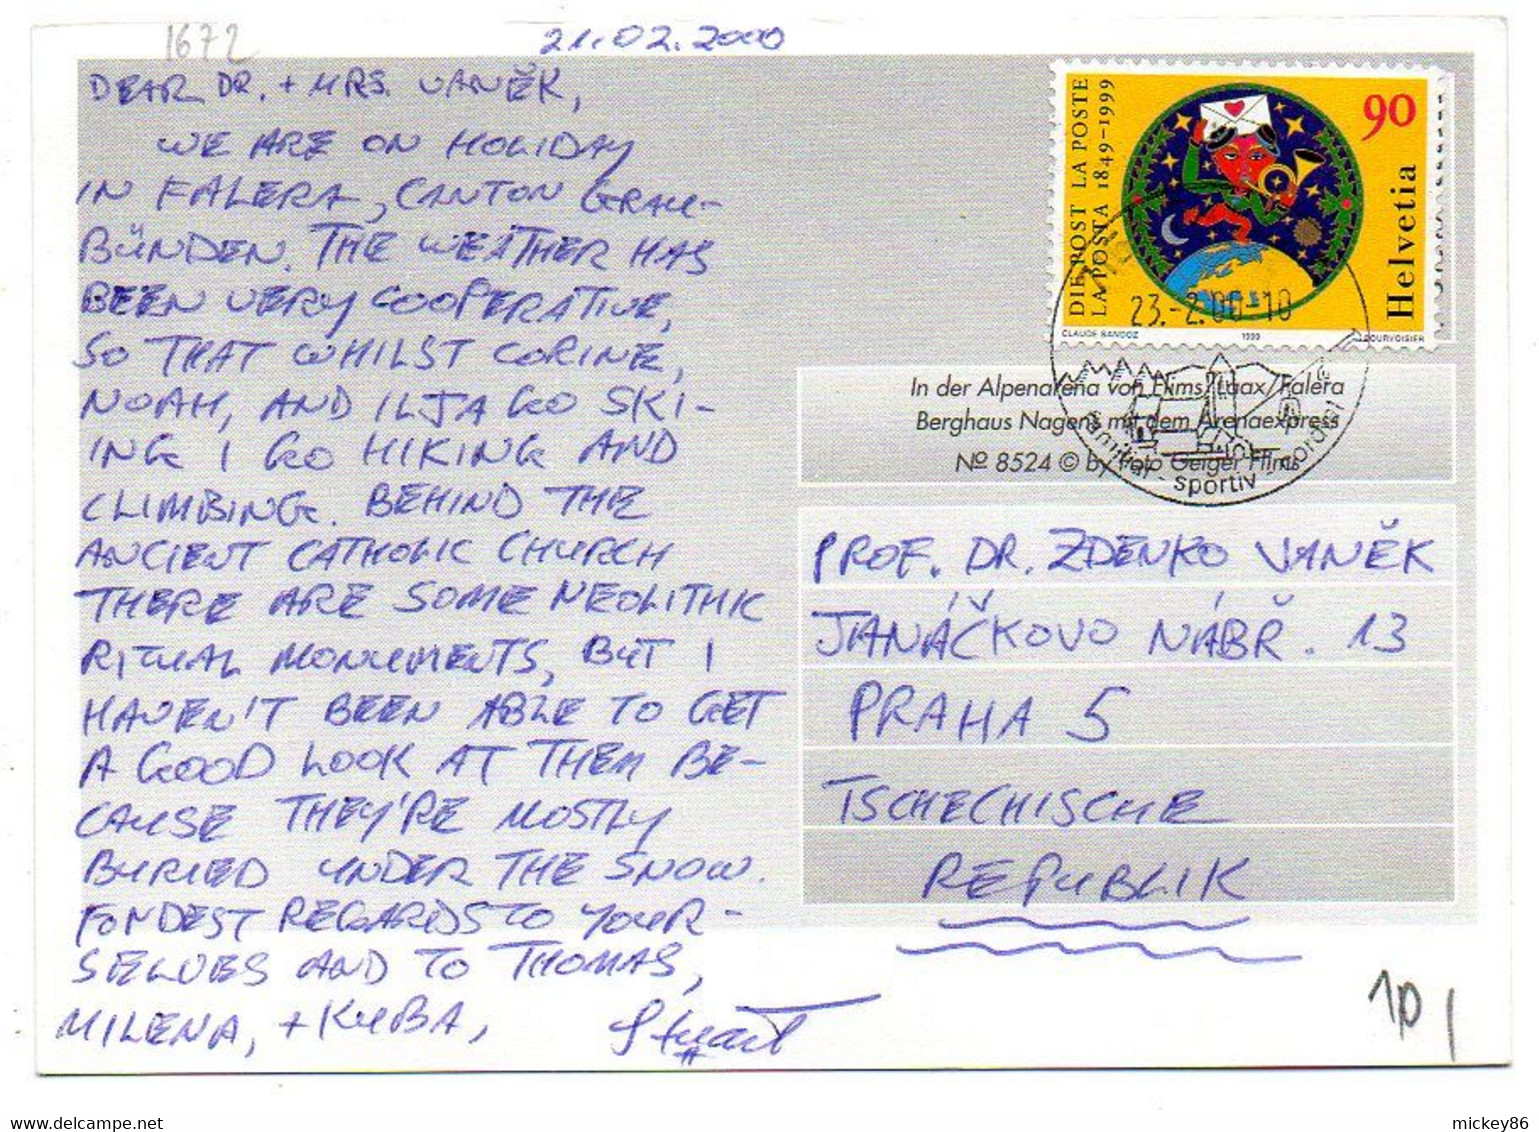 1672
21.02.2000
DEAR DR. + MRS. VANĚK,
WE ARE ON HOLIDAY
IN FALERA, CANTON GRAU-
BÜNDEN. THE WEATHER HAS
BEEN VERY COOPERATIVE,
SO THAT WHILST CORINE,
NOAH, AND ILJA GO SKI-
ING I GO HIKING AND
CLIMBING. BEHIND THE
ANCIENT CATHOLIC CHURCH
THERE ARE SOME NEOLITHIC
RITUAL MONUMENTS, BUT I
HAVEN'T BEEN ABLE TO GET
A GOOD LOOK AT THEM BE-
CAUSE THEY'RE MOSTLY
BURIED UNDER THE SNOW.
FONDEST REGARDS TO YOUR-
SELVES AND TO THOMAS,
MILENA, + KUBA,
Stuart
DIE POST LA POSTE
LA POSTA 1849–1999
90
Helvetia
CLAUDE SANDOZ
1999
COURVOISIER
23.-2.00-10
- sportiv -
In der Alpenarena von Flims/Laax/Falera
Berghaus Nagens mit dem Arenaexpress
№ 8524 © by Foto Geiger Flims
PROF. DR. ZDENKO VANĚK
JANÁČKOVO NÁBŘ. 13
PRAHA 5
TSCHECHISCHE
REPUBLIK
mickey86